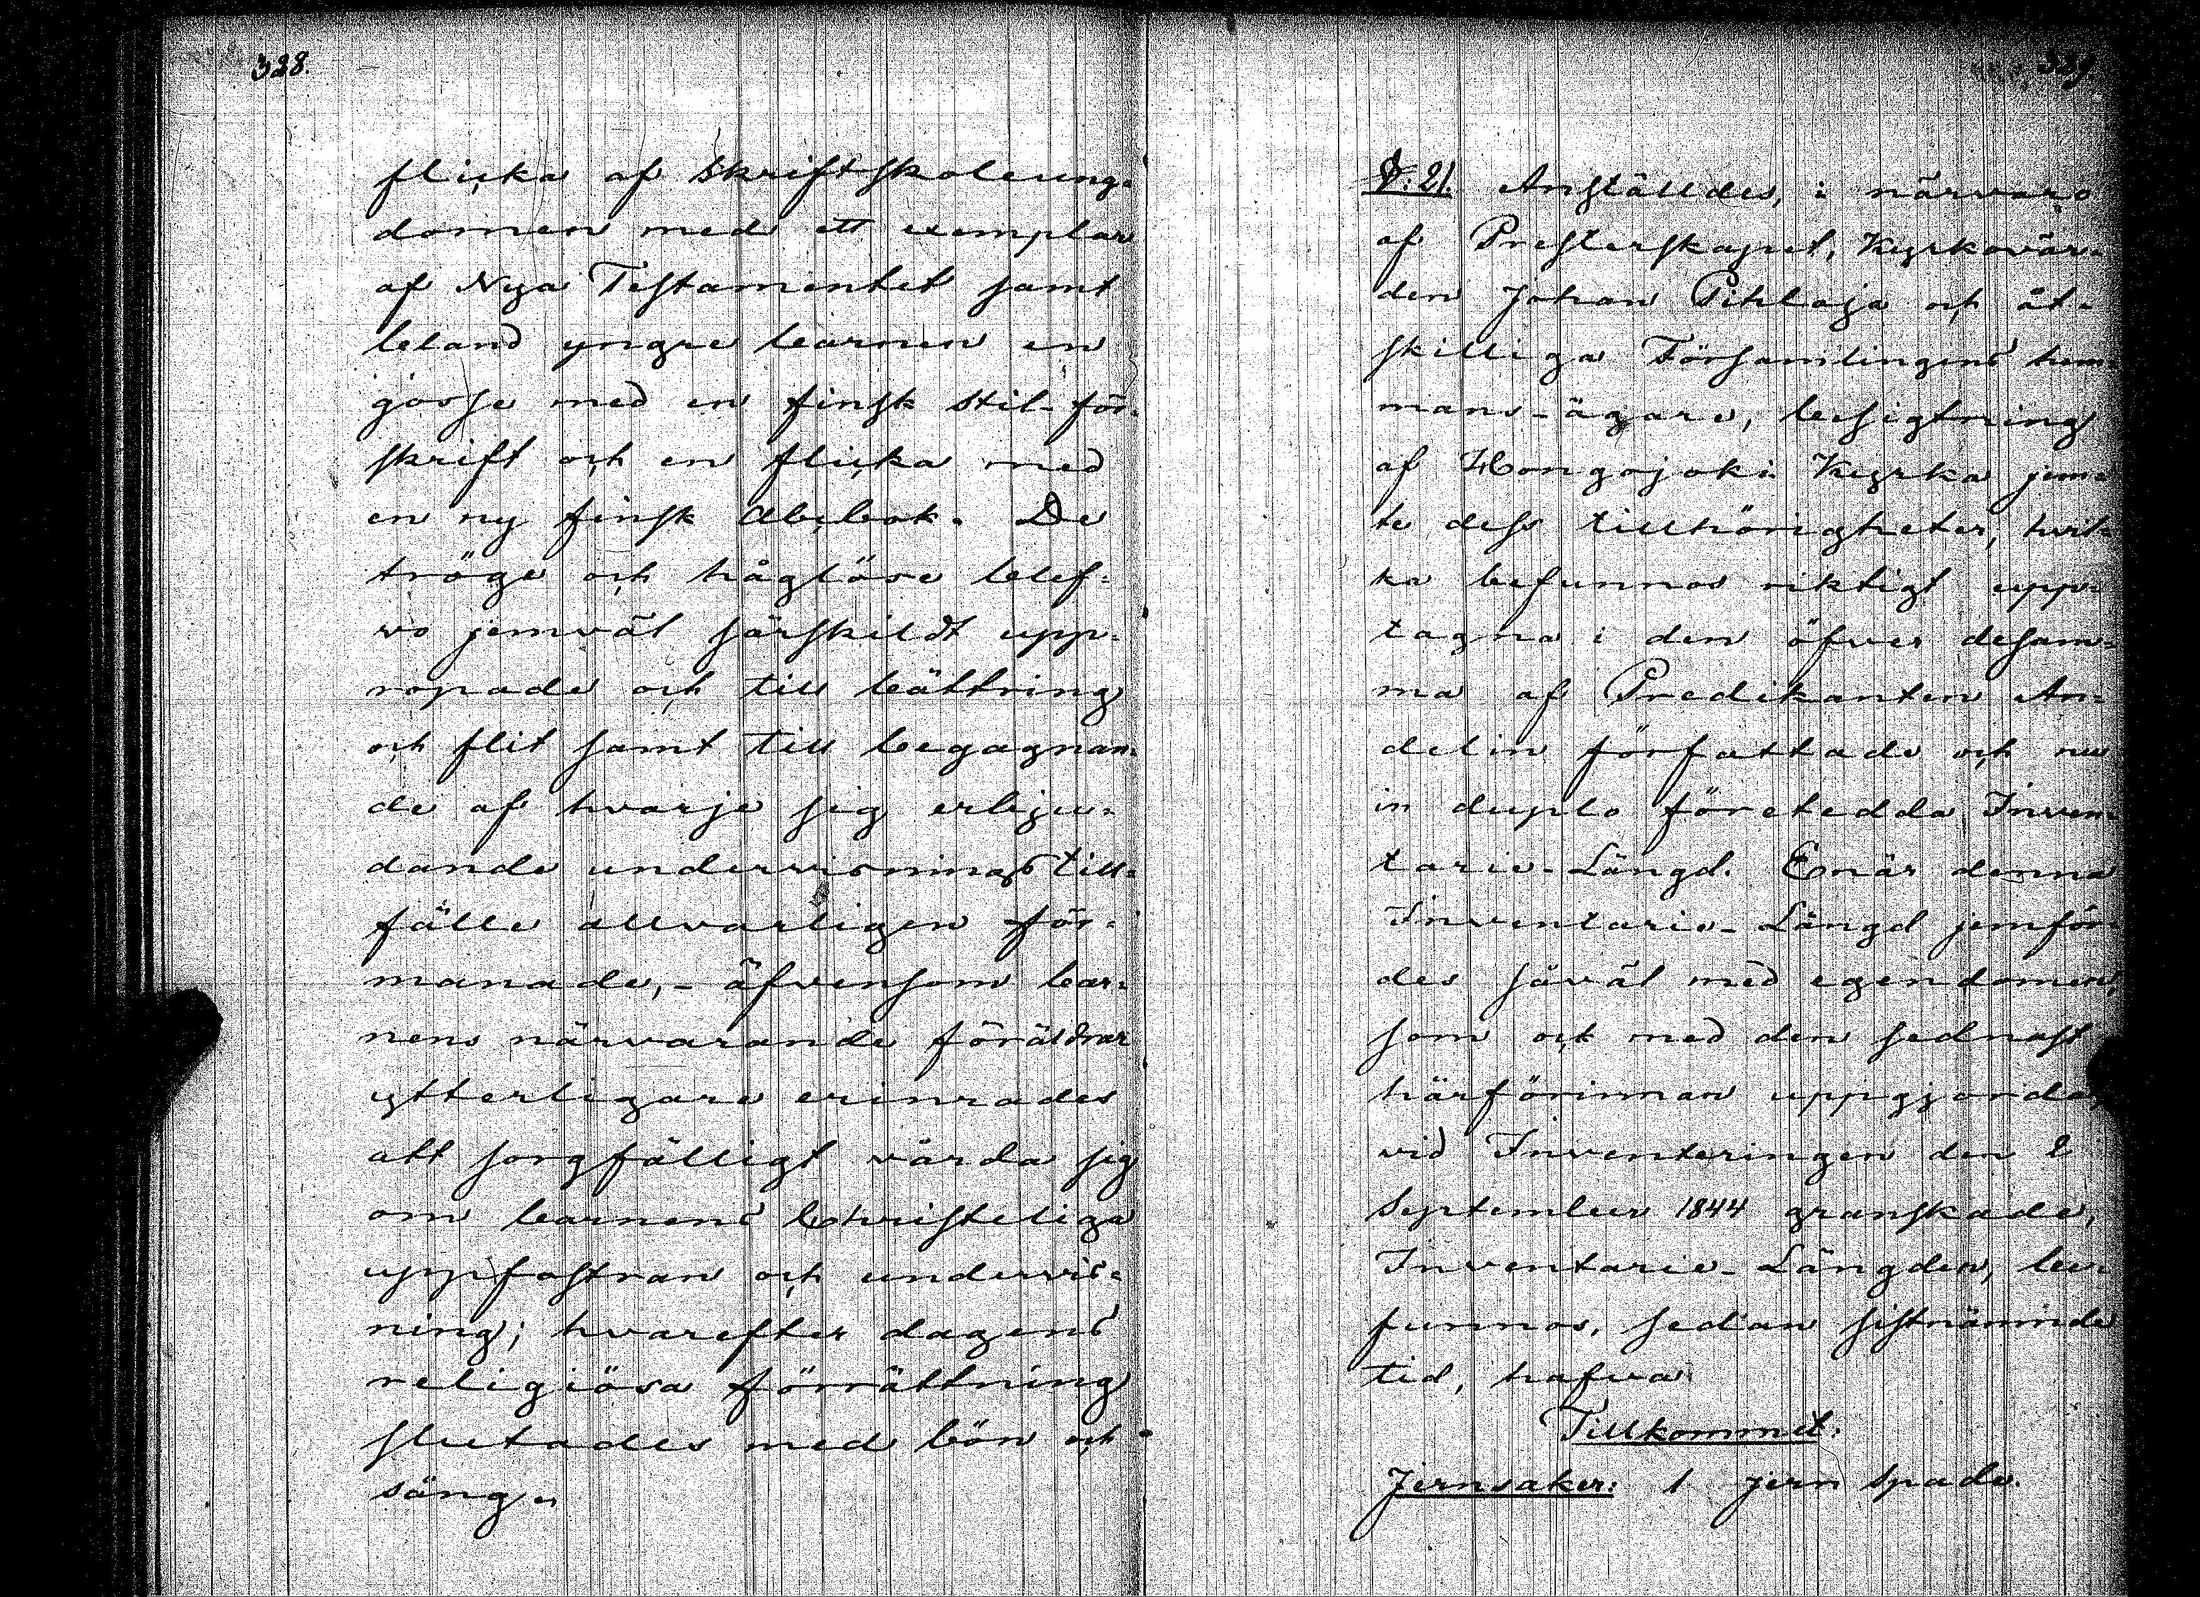 328.
flicka af Skriftskoleung-
domen med ett exemplar
af Nya Testamentet samt
bland yngre barnen en
gosse med en finsk stil-för-
skrift och en flicka med
en ny finsk Abcbok. De
tröge och håglöse blef-
vo jemväl särskildt upp-
ropade och till bättring
och flit samt till begagnan-
de af hvarje sig erbju-
dande undervisnings till-
fälle allvarligen för-
manade, - äfvensom bar-
nens närvarande föräldrar
ytterligare erinrades
att sorgfälligt vårda sig
om barnens Christeliga
uppfostran och undervis-
ning; hvarefter dagens
religiösa förrättning
slutades med bön och
sång.
329.
§: 2). Anställdes, i närvaro
af Presterskapet, Kyrkovär-
den Johan Pihlaja och åt-
skilliga Församlingens hem-
mans-ägare, besigtning
af Hongojoki Kyrka jem-
te dess tillhörigheter, hvil-
ka befunnos riktigt upp-
tagna i den öfver desam-
ma af Predikanten An-
delin författade och nu
in duplo företedda Inven-
tarie-Längd. Enär denna
Inventarie-Längd jemför-
des såväl med egendomen,
som ock med den sednast
härförinnan uppgjorda,
vid Inventeringen den 2
September 1844 granskade,
Inventarie-Längden, be-
funnos, sedan sistnämnde
tid, hafva
Tillkommit:
Jernsaker: 1 jern spade.